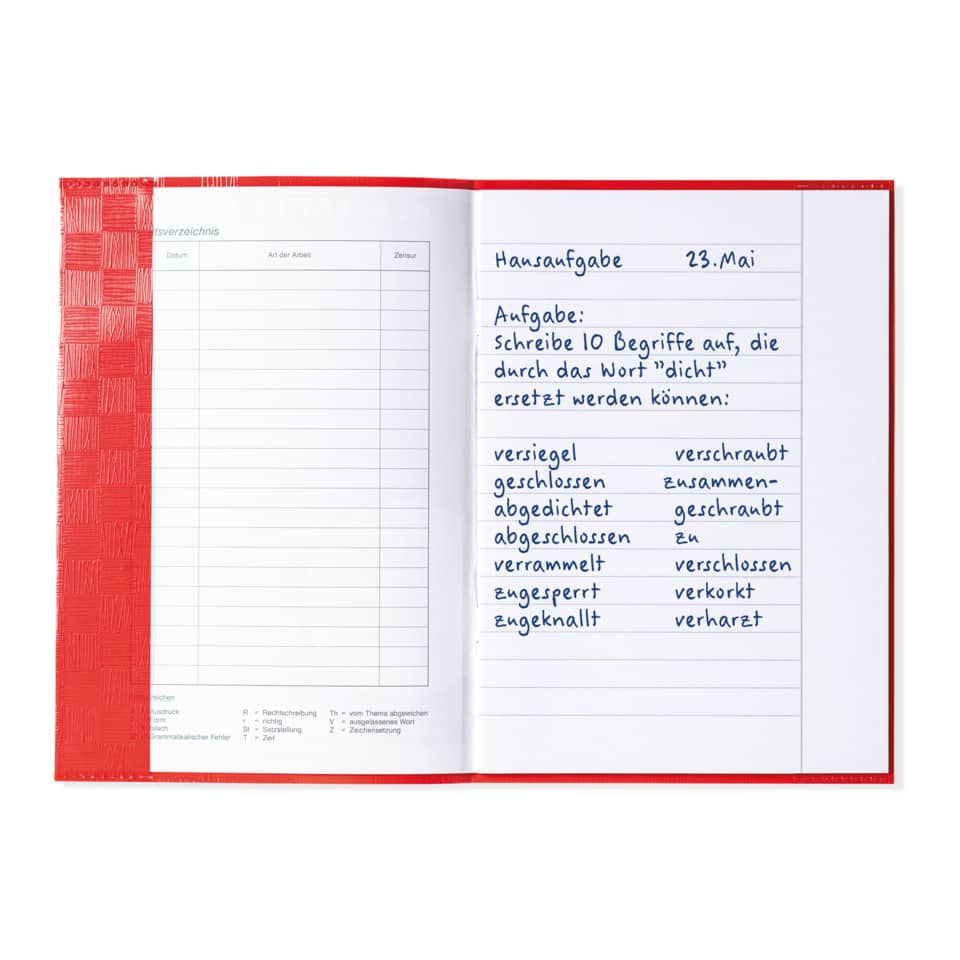 tsverzeichnis
Datum Art der Arbeit Zensur
Ausdruck R = Rechtschreibung Th = vom Thema abgewichen
Form r = richtig V = ausgelassenes Wort
St = Satzstellung Z = Zeichensetzung
Grammatikalischer Fehler T = Zeit
Hausaufgabe 23. Mai
Aufgabe:
Schreibe 10 Begriffe auf, die
durch das Wort "dicht"
ersetzt werden können:
versiegel verschraubt
geschlossen zusammen-
abgedichtet geschraubt
abgeschlossen zu
verrammelt verschlossen
zugesperrt verkorkt
zugeknallt verharzt